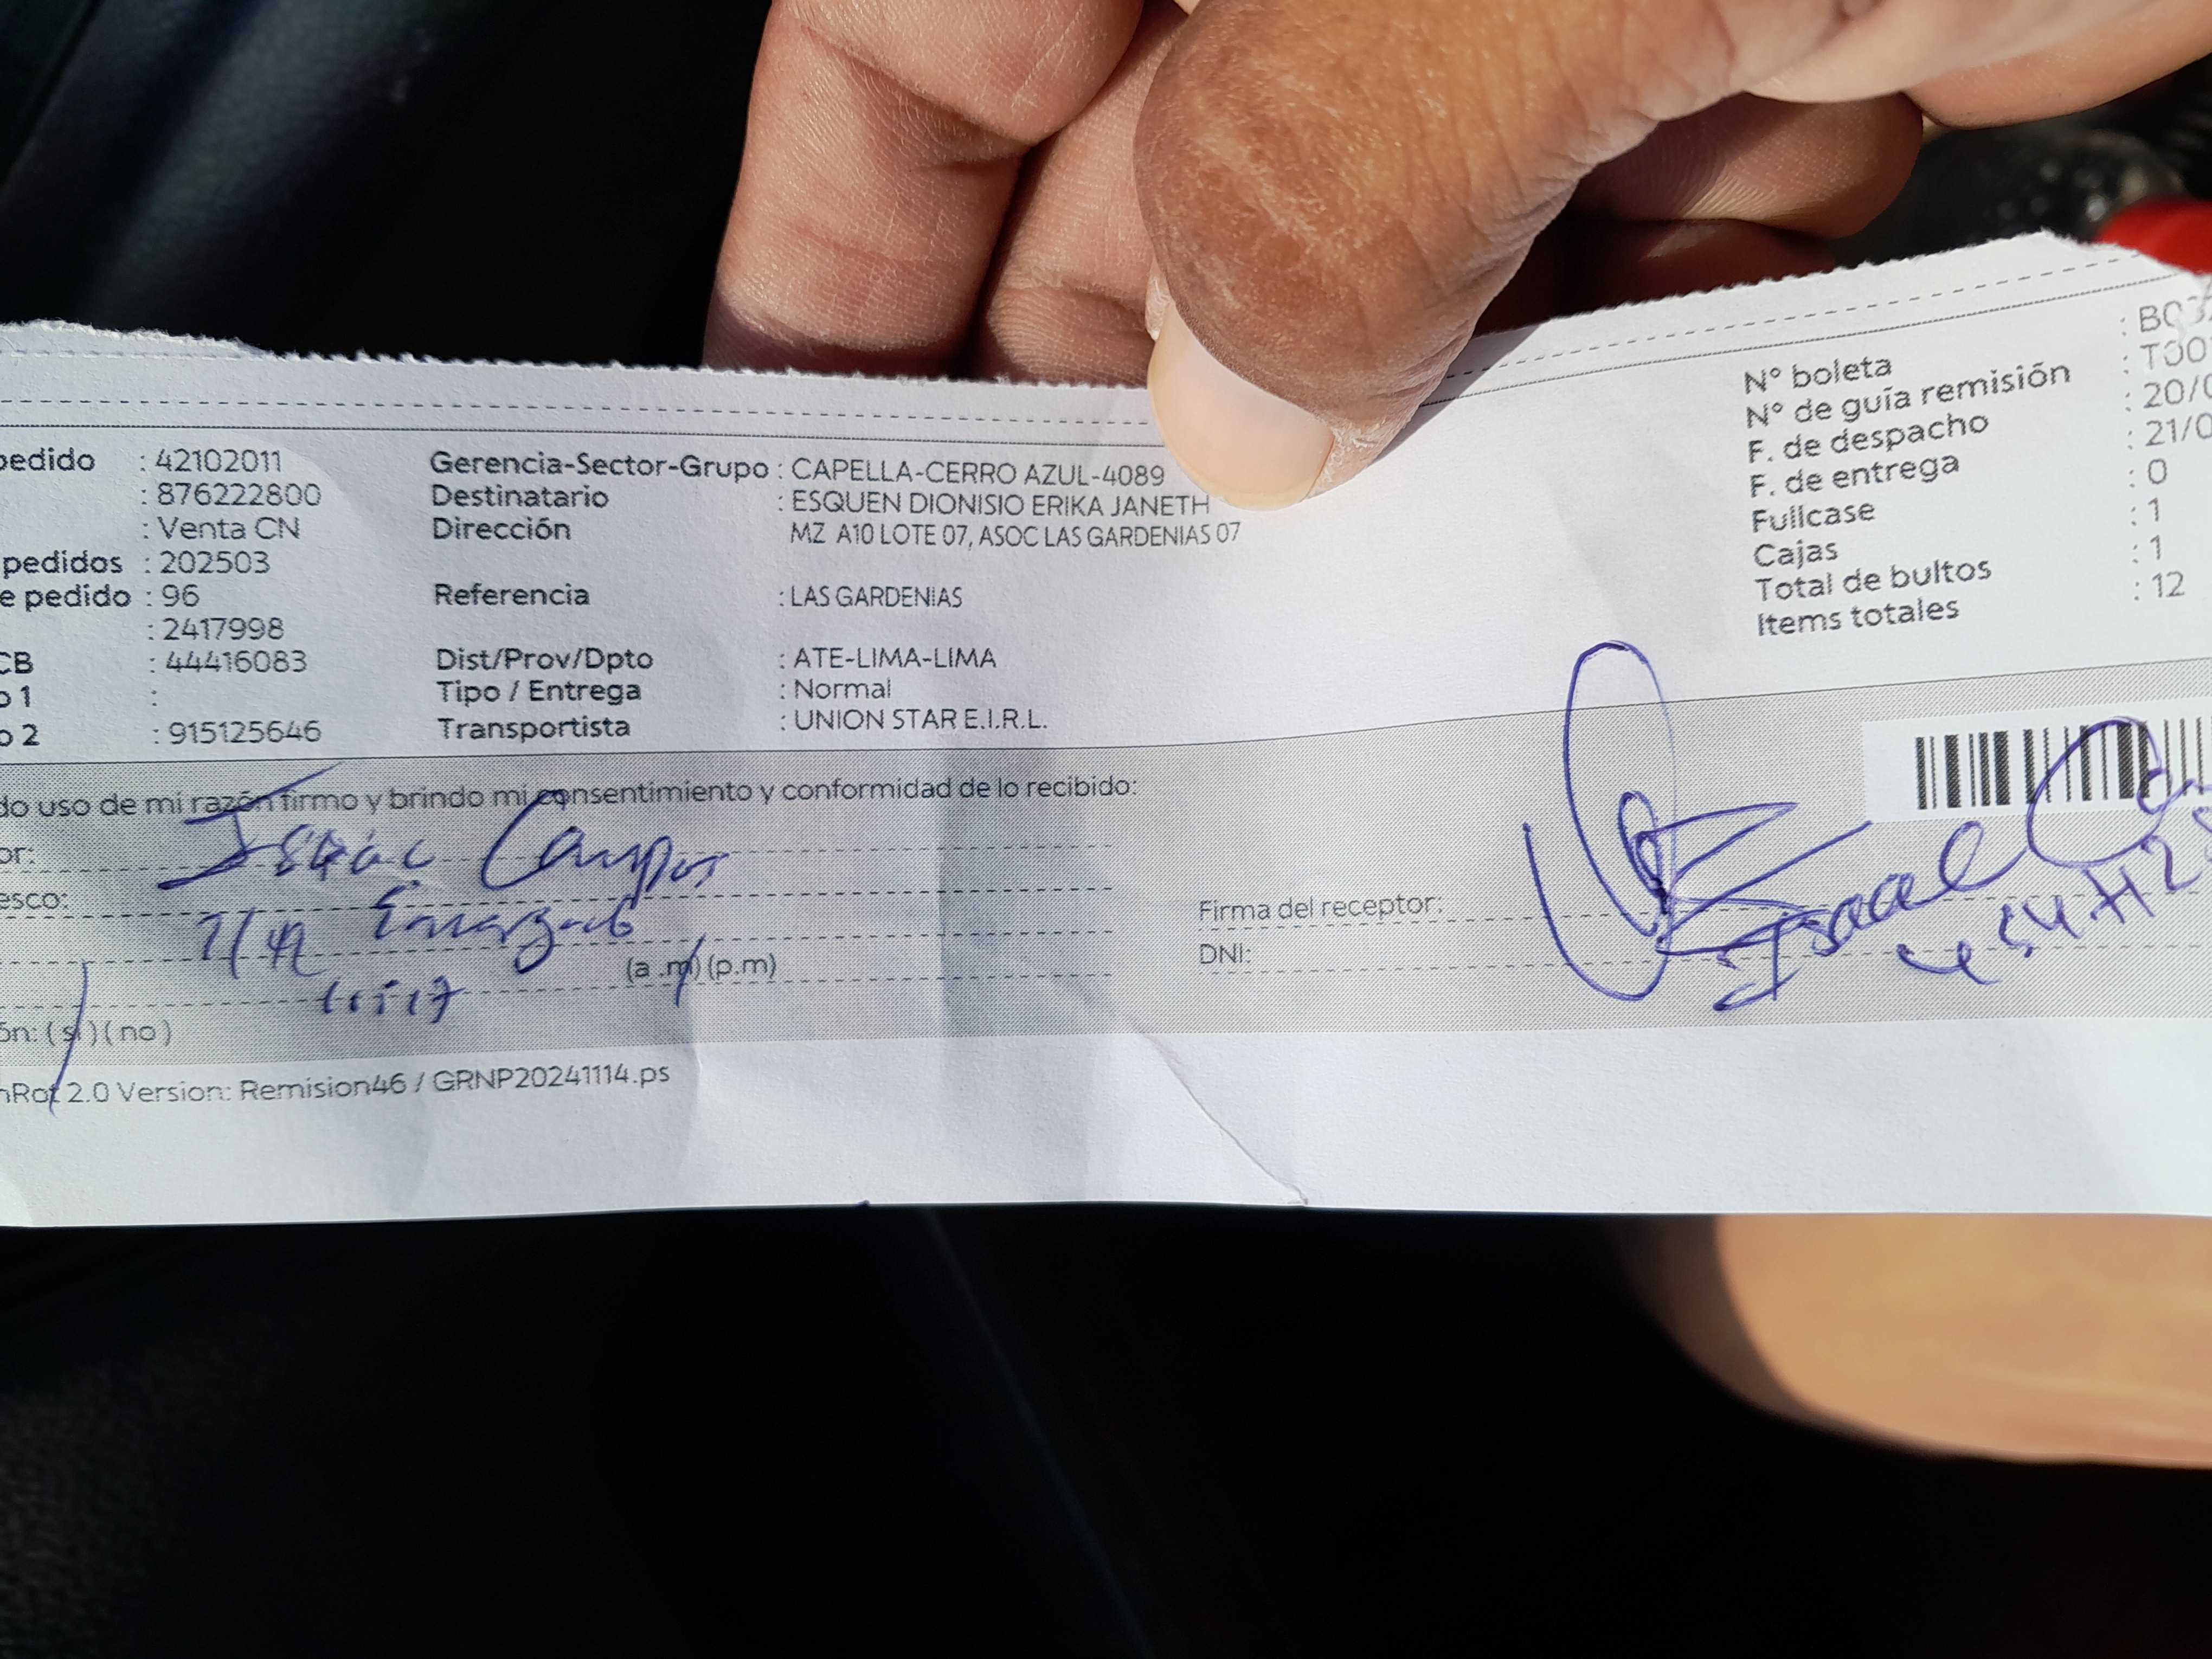 pedido : 42102011
: 876222800
: Venta CN
pedidos : 202503
e pedido : 96
: 2417998
CB : 44416083
o 1 :
o 2 : 915125646
Gerencia-Sector-Grupo : CAPELLA-CERRO AZUL-4089
Destinatario : ESQUEN DIONISIO ERIKA JANETH
Dirección MZ A10 LOTE 07, ASOC LAS GARDENIAS 07
Referencia : LAS GARDENIAS
Dist/Prov/Dpto : ATE-LIMA-LIMA
Tipo / Entrega : Normal
Transportista : UNION STAR E.I.R.L.
N° boleta : B03
N° de guía remisión : T00
F. de despacho : 20/0
F. de entrega : 21/0
Fullcase : 0
Cajas : 1
Total de bultos : 1
Items totales : 12
do uso de mi razón firmo y brindo mi consentimiento y conformidad de lo recibido:
or: Isaac Campos
esco: Encargado
(a .m) (p.m)
ón: ( si ) ( no )
Firma del receptor:
DNI:
nRot 2.0 Version: Remision46 / GRNP20241114.ps